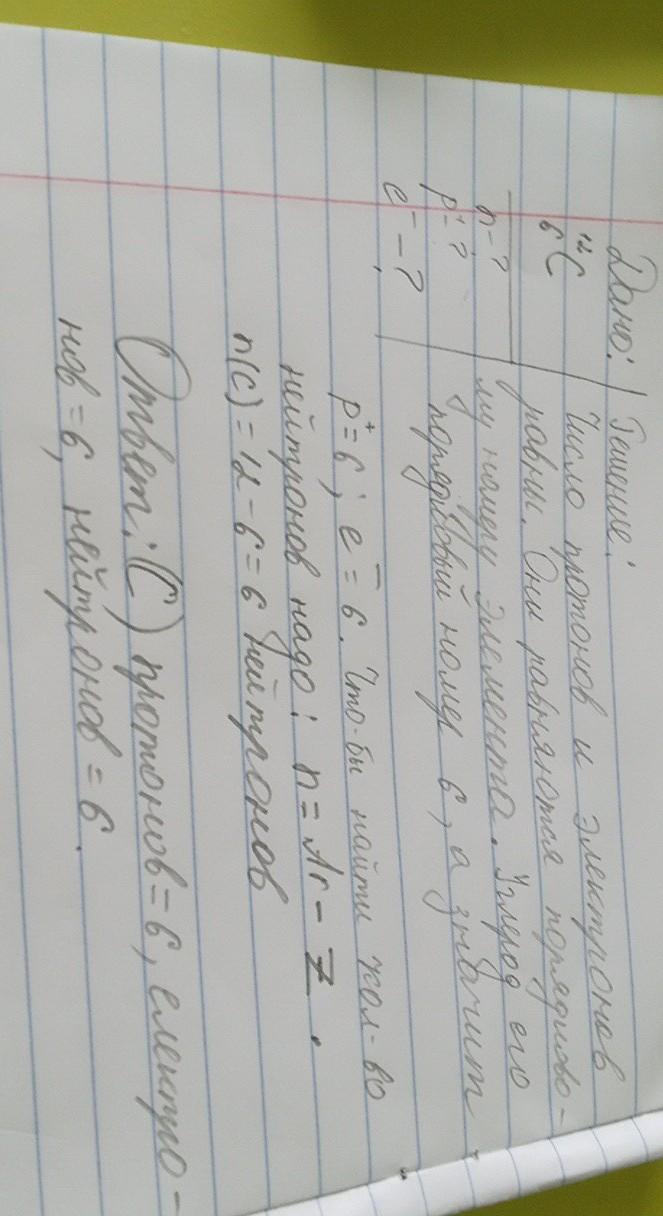 Дано: Решение:
¹²₆C Число протонов и электронов
равны. Они равняются порядково-
n-? му номеру элемента. Углерод его
p⁺-? порядковый номер 6, а значит
e⁻-?
p⁺=6; e⁻=6. Что-бы найти кол-во
нейтронов надо: n=Ar-Z.
n(C)=12-6=6 нейтронов
Ответ: (C) протонов=6, електро-
нов=6, нейтронов=6.